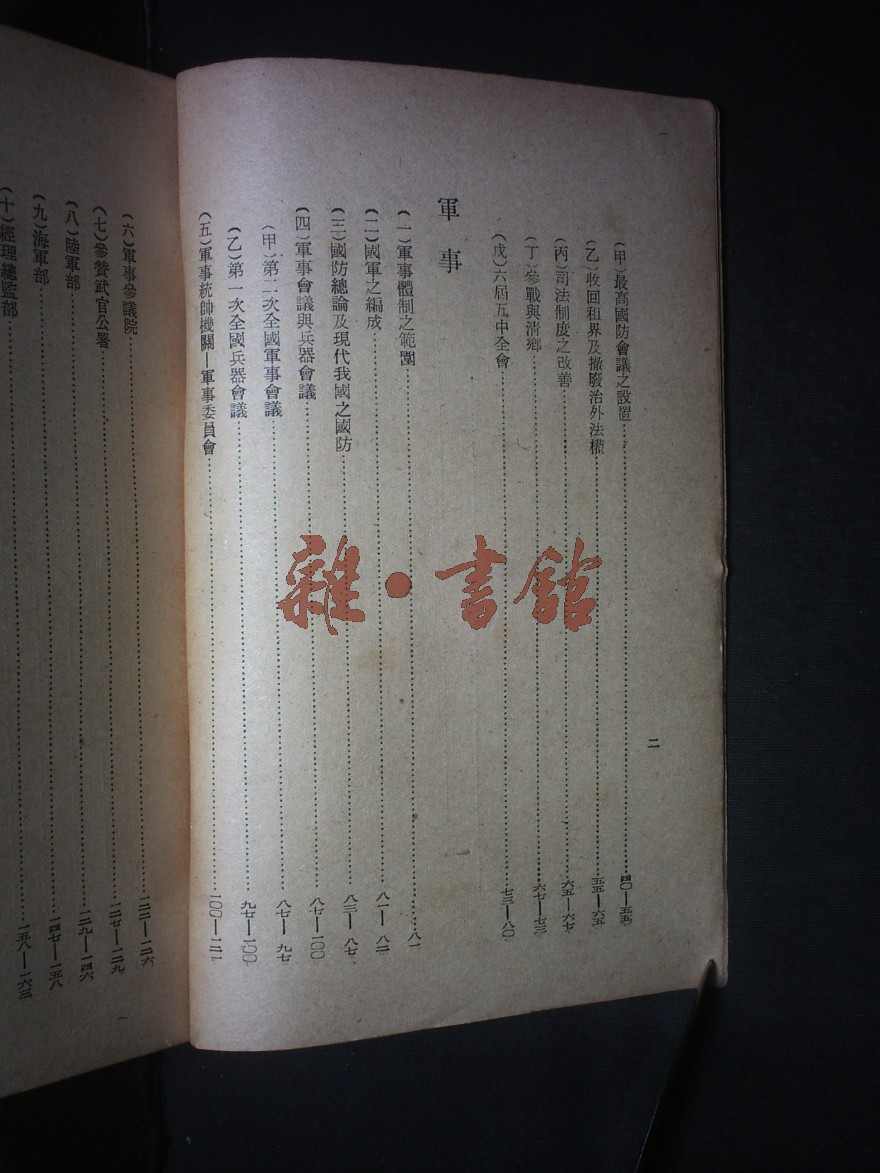 (甲)最高國防會議之設置……四〇—五五
(乙)收回租界及撤廢治外法權……五五—六五
(丙)司法制度之改善……六五—六七
(丁)參戰與清鄉……六七—七三
(戊)六屆五中全會……七三—八〇
軍事
(一)軍事體制之範圍……八一
(二)國軍之編成……八一—八二
(三)國防總論及現代我國之國防……八三—八七
(四)軍事會議與兵器會議……八七—一〇〇
(甲)第二次全國軍事會議……八七—九七
(乙)第一次全國兵器會議……九七—一〇〇
(五)軍事統帥機關—軍事委員會……一〇〇—一二一
二
(六)軍事參議院……一二二—一二六
(七)參贊武官公署……一二七—一二九
(八)陸軍部……一二九—一四六
(九)海軍部……一四七—一五八
(十)經理總監部……一五八—一六三
雜·書館